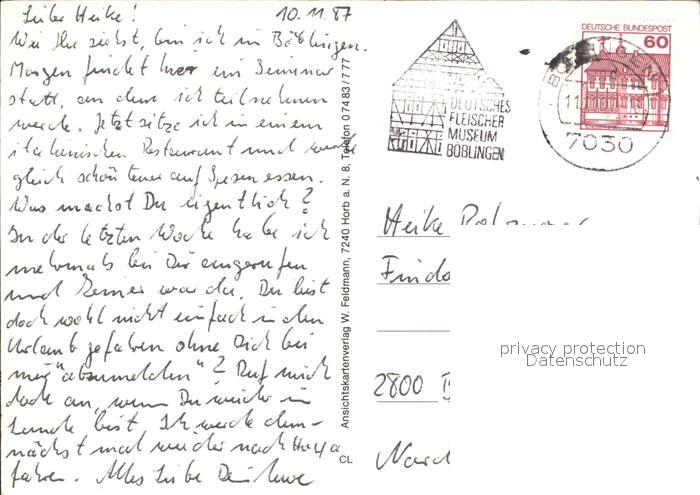 10.11.87
Liebe Heike!
Wie Du siehst, bin ich in Böblingen.
Morgen findet hier ein Seminar
statt, an dem ich teilnehmen
werde. Jetzt sitze ich in einem
italienischen Restaurant und werde
gleich schön teuer auf Spesen essen.
Was machst Du eigentlich?
In der letzten Woche habe ich
mehrmals bei Dir angerufen
und keiner war da. Du bist
doch wohl nicht einfach in den
Urlaub gefahren ohne Dich bei
mir "abzumelden"? Ruf mich
doch an, wenn Du wieder im
Lande bist. Ich werde dem-
nächst mal wieder nach
fahren. Alles Liebe Dein Uwe
Ansichtskartenverlag W. Feldmann, 7240 Horb a. N. 8, Telefon 0 74 83 / 7 77
CL
DEUTSCHES
FLEISCHER
MUSEUM
BÖBLINGEN
DEUTSCHE BUNDESPOST
60
BÖBLINGEN
11.
7030
Heike
2800
privacy protection
Datenschutz